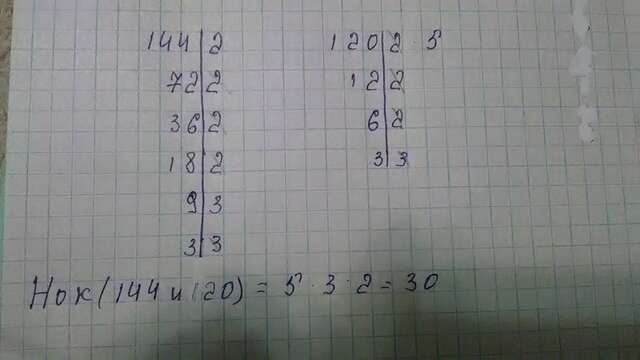 144|2 120|2·5
72|2 12|2
36|2 6|2
18|2 3|3
9|3
3|3
Нок(144 и 120) = 5·3·2 = 30